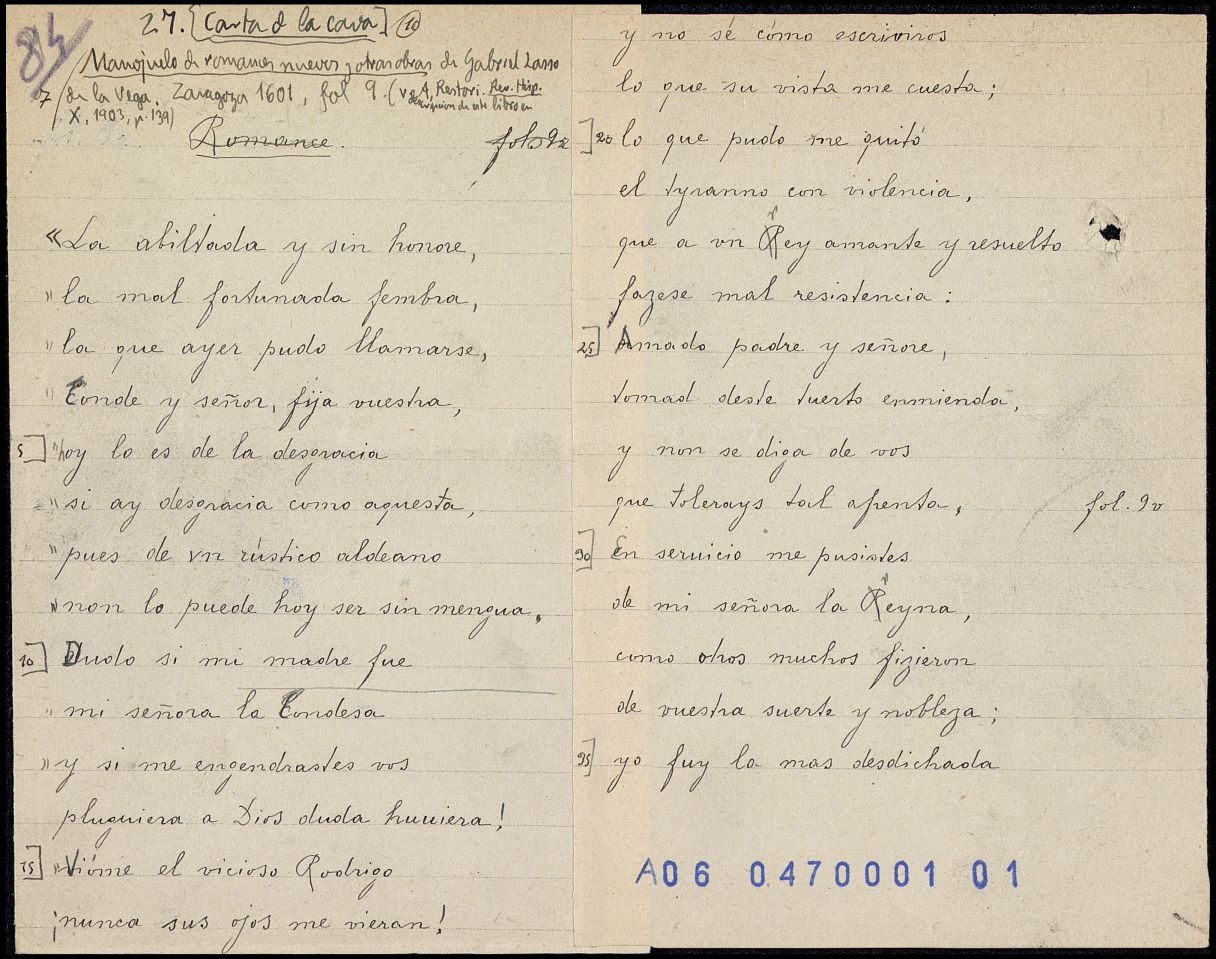 84
27. [Carta d la cava] (10)
Manojuelo de romances nuevos y otras obras de Gabriel Lasso
7/ de la Vega. Zaragoza 1601, fol 9. (v. A. Restori. Rev. Hisp.
descripcion de este libro en
X, 1903, p. 139)
Romance. fol. 9r
«La abiltada y sin honore,
"la mal fortunada fembra,
"la que ayer pudo llamarse,
"Conde y señor, fija vuestra,
5] "hoy lo es de la desgracia
"si ay desgracia como aquesta,
"pues de vn rústico aldeano
"non lo puede hoy ser sin mengua.
10] Dudo si mi madre fue
"mi señora la Condesa
"y si me engendrastes vos
pluguiera a Dios duda huuiera!
15] "Vióme el vicioso Rodrigo
¡nunca sus ojos me vieran!
y no sé cómo escriviros
lo que su vista me cuesta;
]20 lo que pudo me quitó
el tyranno con violencia,
que a vn Rey amante y resuelto
fazese mal resistencia:
25] Amado padre y señore,
tomad deste tuerto enmienda,
y non se diga de vos
que tolerays tal afrenta, fol. 9v
30] En seruicio me pusistes
de mi señora la Reyna,
como otros muchos fizieron
de vuestra suerte y nobleza;
35] yo fuy la mas desdichada
A06 0470001 01